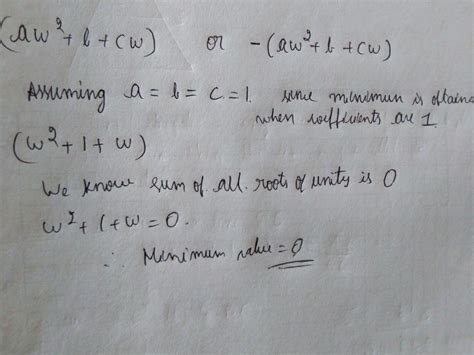 (aw² + b + cw) or -(aw² + b + cw)
Assuming a = b = c = 1. since minimum is obtained
when coefficients are 1
(w² + 1 + w)
We know sum of all roots of unity is 0
w² + 1 + w = 0.
∴ Minimum value = 0